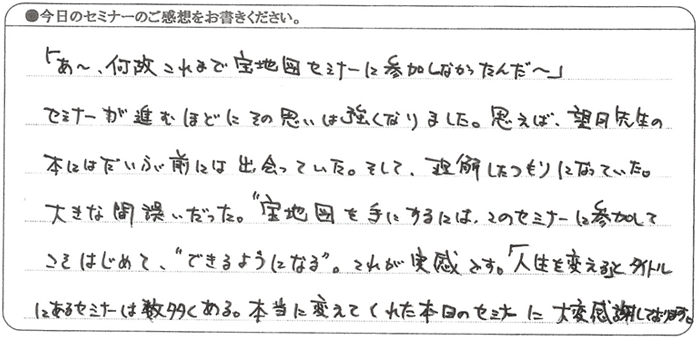 ●今日のセミナーのご感想をお書きください。
「あ～、何故これまで宝地図セミナーに参加しなかったんだ～」
セミナーが進むほどにその思いは強くなりました。思えば、望月先生の
本にはだいぶ前には出会っていた。そして、理解したつもりになっていた。
大きな間誤いだった。"宝地図を手にするには、このセミナーに参加して
こそはじめて、"できるようになる"。これが実感です。「人生を変える」とタイトル
にあるセミナーは数多くある。本当に変えてくれた本日のセミナーに大変感謝しております。